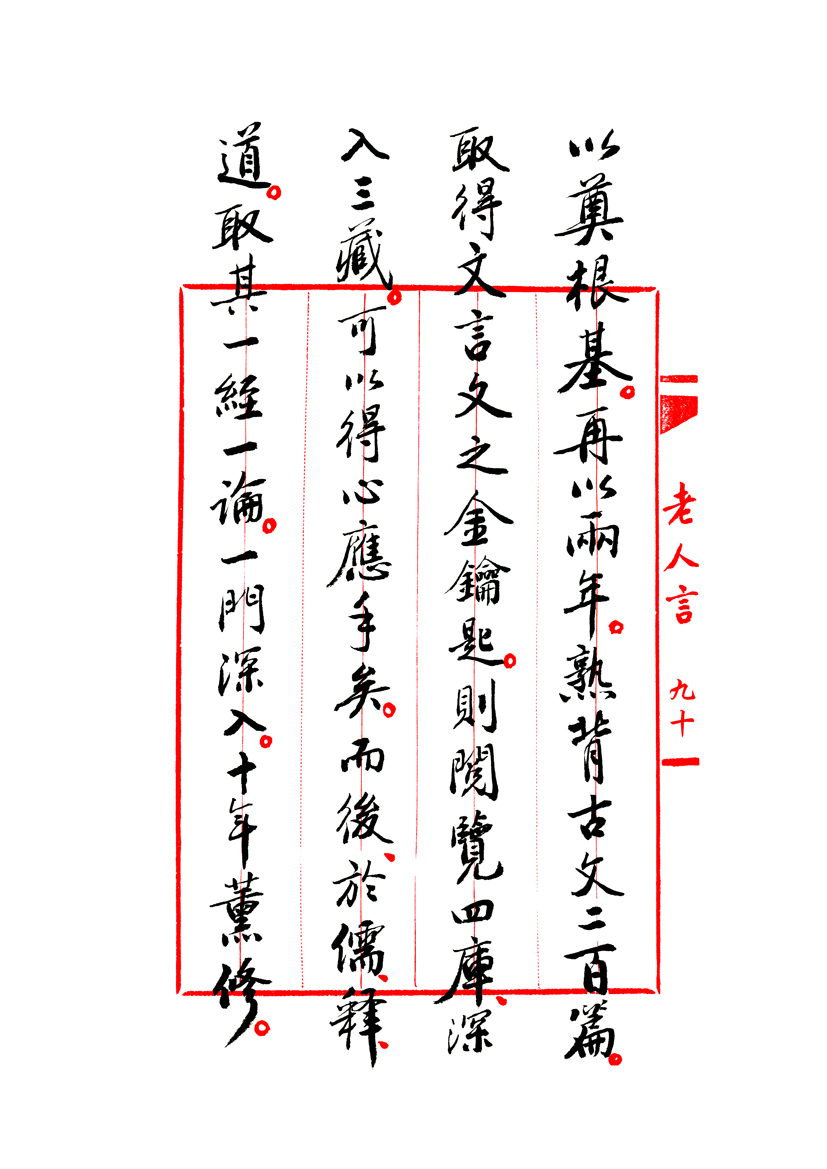 以奠根基。再以兩年。熟背古文二百篇。
取得文言文之金鑰匙。則閱覽四庫、深
入三藏。可以得心應手矣。而後、於儒、釋、
道。取其一經一論。一門深入。十年薰修。
老人言 九十